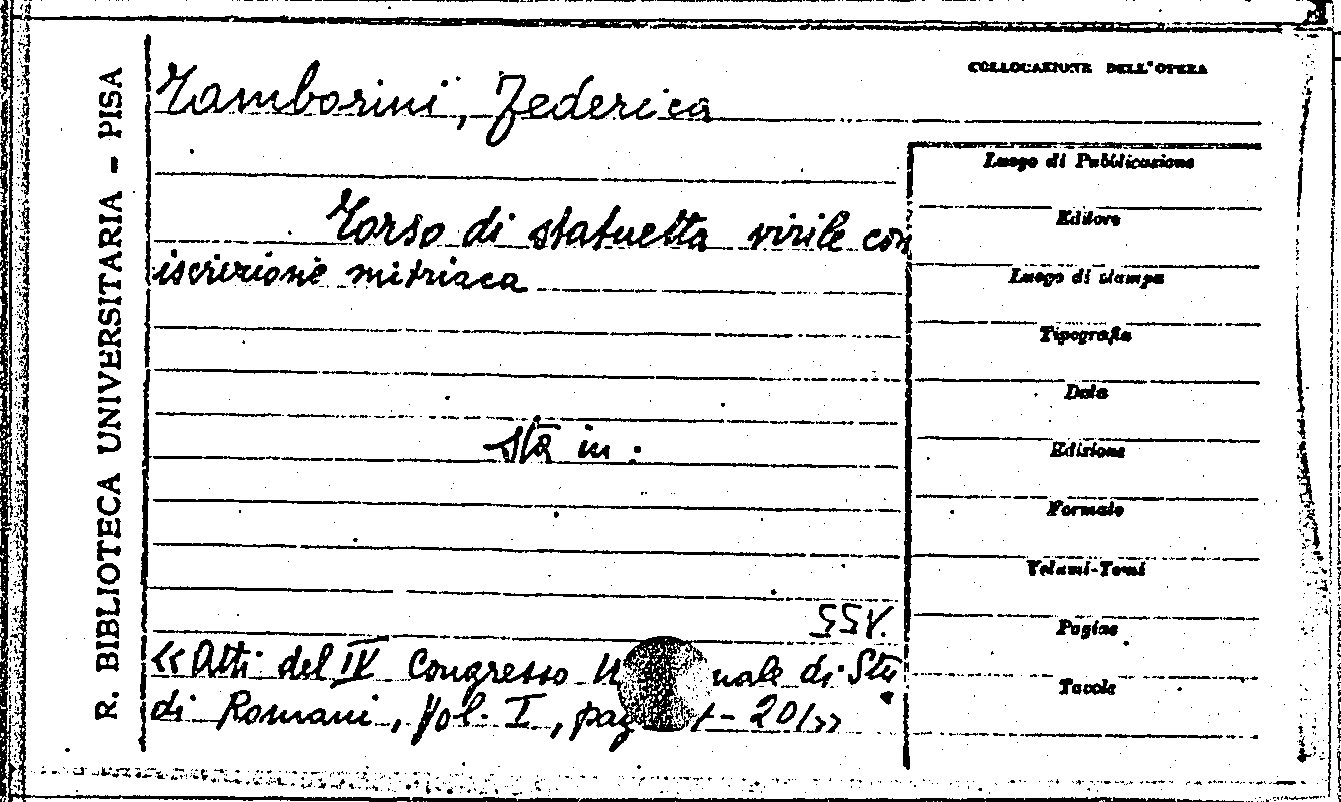 R. BIBLIOTECA UNIVERSITARIA - PISA
Tamborini, Federica
Torso di statuetta virile con
iscrizione mitriaca
Sta in:
«Atti del IV Congresso di Stu
di Romani, Vol. I, pag
COLLOCAZIONE DELL'OPERA
Luogo di Pubblicazione
Editore
Luogo di stampa
Tipografia
Data
Edizione
Formato
Volumi-Tomi
Pagine
Tavole